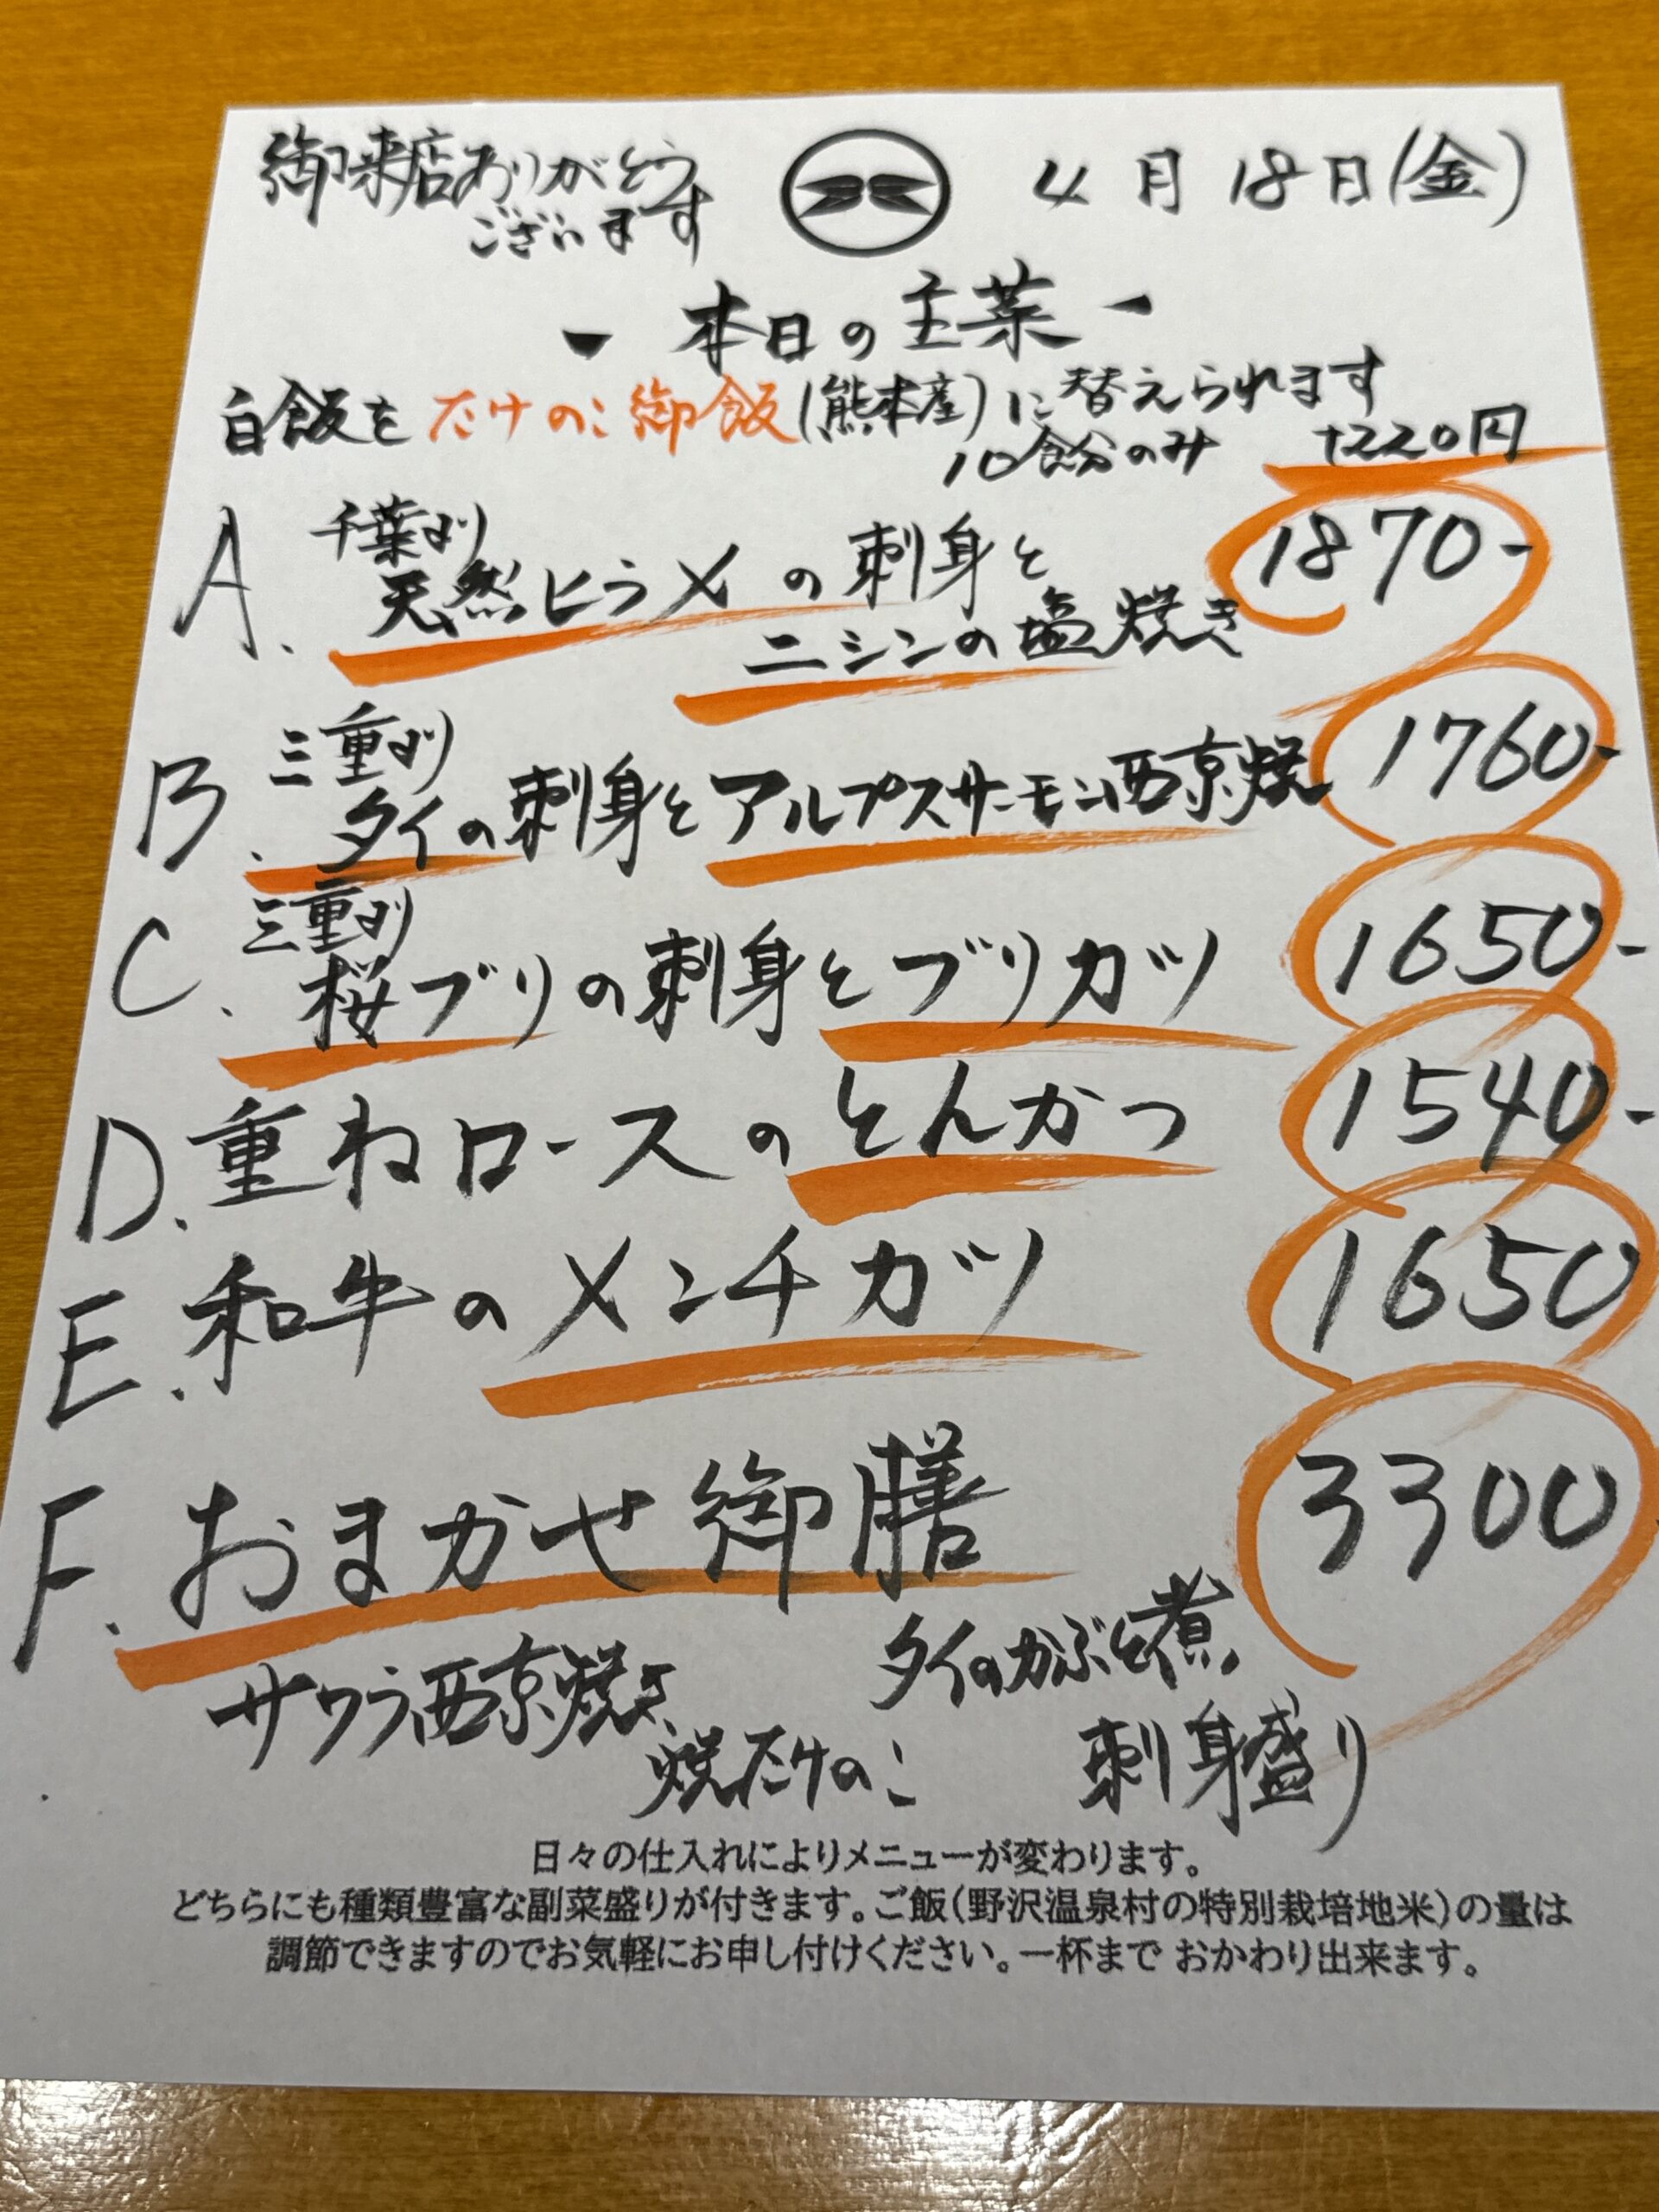 御来店ありがとう
ございます
4月18日(金)
- 本日の主菜 -
白飯をたけのこ御飯(熊本産)に替えられます
10食分のみ +220円
A. 千葉より
天然ヒラメの刺身と 1870-
ニシンの塩焼き
B. 三重より
タイの刺身とアルプスサーモン西京焼 1760-
C. 三重より
桜ブリの刺身とブリカツ 1650-
D. 重ねロースのとんかつ 1540-
E. 和牛のメンチカツ 1650
F. おまかせ御膳 3300
サワラ西京焼き タイのかぶと煮
焼たけのこ 刺身盛り
日々の仕入れによりメニューが変わります。
どちらにも種類豊富な副菜盛りが付きます。ご飯(野沢温泉村の特別栽培地米)の量は
調節できますのでお気軽にお申し付けください。一杯まで おかわり出来ます。